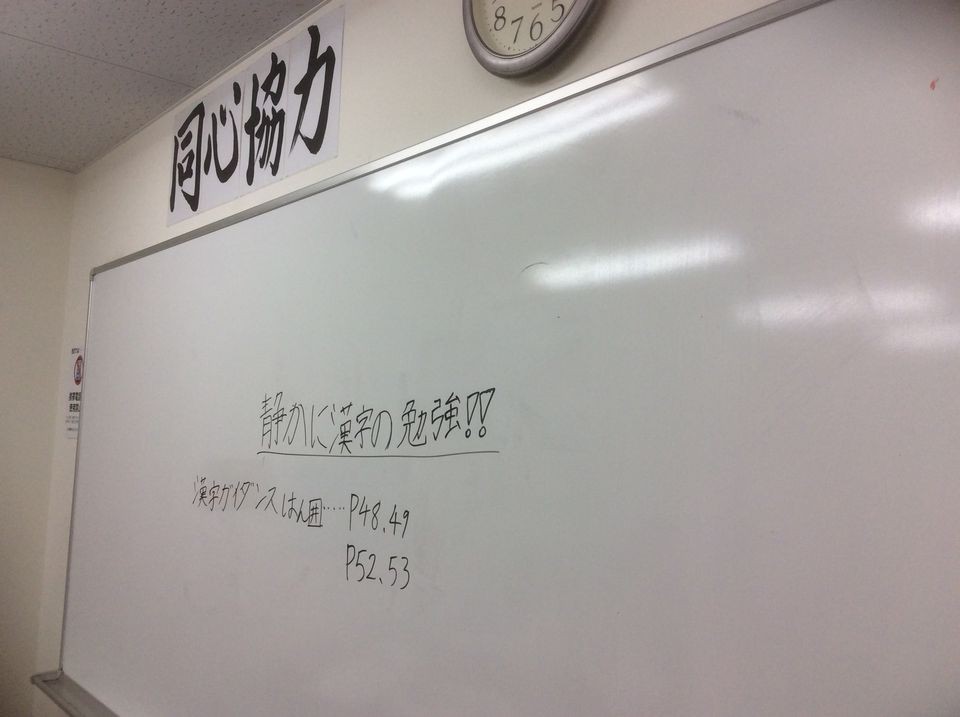 同心協力
8 7 6 5
静かに漢字の勉強!!
漢字ガイダンスはん囲‥‥P48.49
P52.53